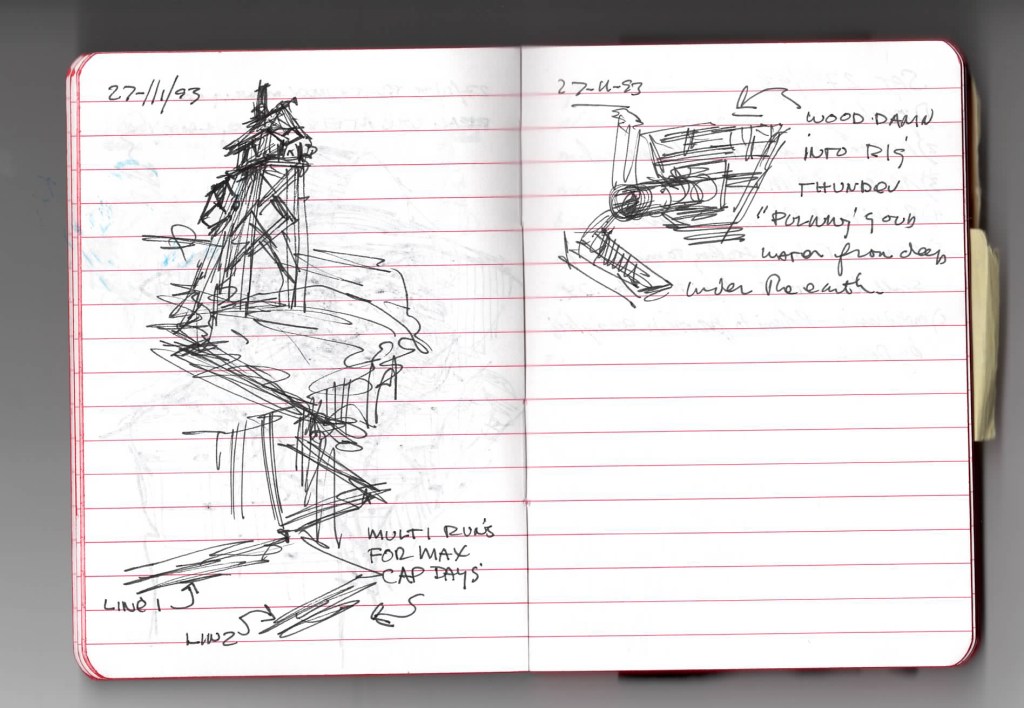 27-11-93
MULTI RUN'S
FOR MAX
'CAP DAYS'
LINE 1
LIN2
27-11-93
WOOD DAMN
INTO RIG
THUNDER
water from deep
under the earth.